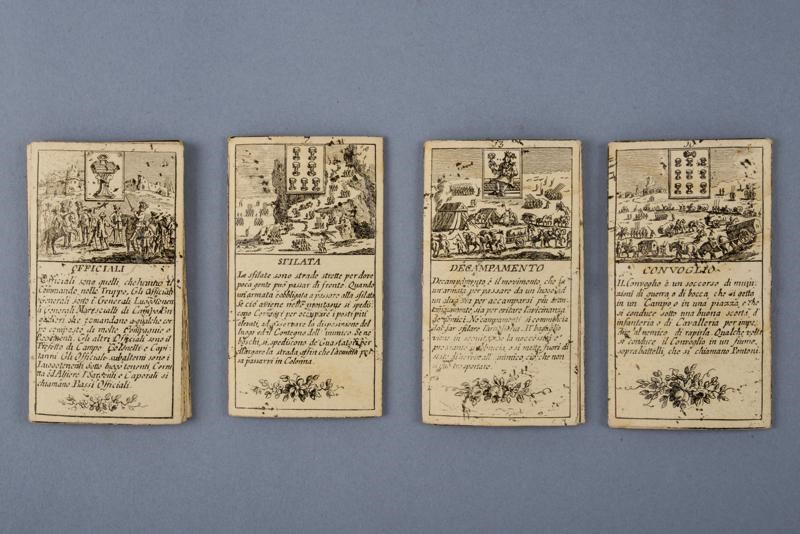 OFFICIALI
Officiali sono quelli, che hanno il
Commando nelle Truppe. Gli Officiali
Generali sono i Generali Luogotenen
ti Generali Marescialli di Campo
che comandano
composto di molte Compagnie o
Regimenti. Gli altri Officiali sono il
Prefetto di Campo Colonelli e Capi
tanni. Gli Officiali subalterni sono i
Luogotenenti Sotto luogo tenenti Corne
tta ed Alfiere. I Sargenti e Caporali si
chiamano Bassi Officiali.
7
SFILATA
Le sfilate sono strade strette per dove
poca gente può passar di fronte. Quando
un'armata è obbligata a passare alla sfilata
se ciò aviene nelle montagne si spedi-
scono Corpi per occupare i posti più
elevati, ad osservare la disposizione del
luogo ed il Contegno dell' inimico. Se ne
boschi, si spediscono de Guastatori per
allargare la strada affin che l'armata po
sa passarvi in Colonna.
13
DECAMPAMENTO
Decampamento è il movimento, che fa
un'armata, per passare da un luogo ad
un altro sia per accamparsi più
sia per evitare la vicinanza
de' Nemici. Ne campamenti si comincia
dal far sfilare l'artiglieria. Il bagaglio
viene in seguito, se la necessità è
pressante si abbrucia, o si mette fuori di
stato di servire all' inimico ciò che non
trasportato.
CONVOGLIO
IL Convoglio è un soccorso di muni-
zioni di guerra, o di bocca, che si getta
in un Campo o in una piazza, e che
si conduce sotto una buona scorta d'
infanteria o di Cavalleria per impe
dire al nemico di rapirla. Qualche volta
si conduce il Convoglio in un fiume,
sopra battelli, che si chiamano Pontoni.